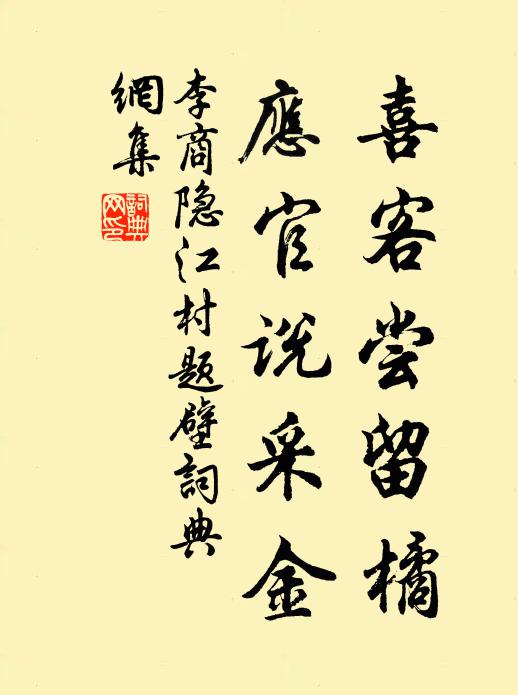 喜客尝留橘
應官说采金
李商隐江村题壁詞典
網集
詞典
网印